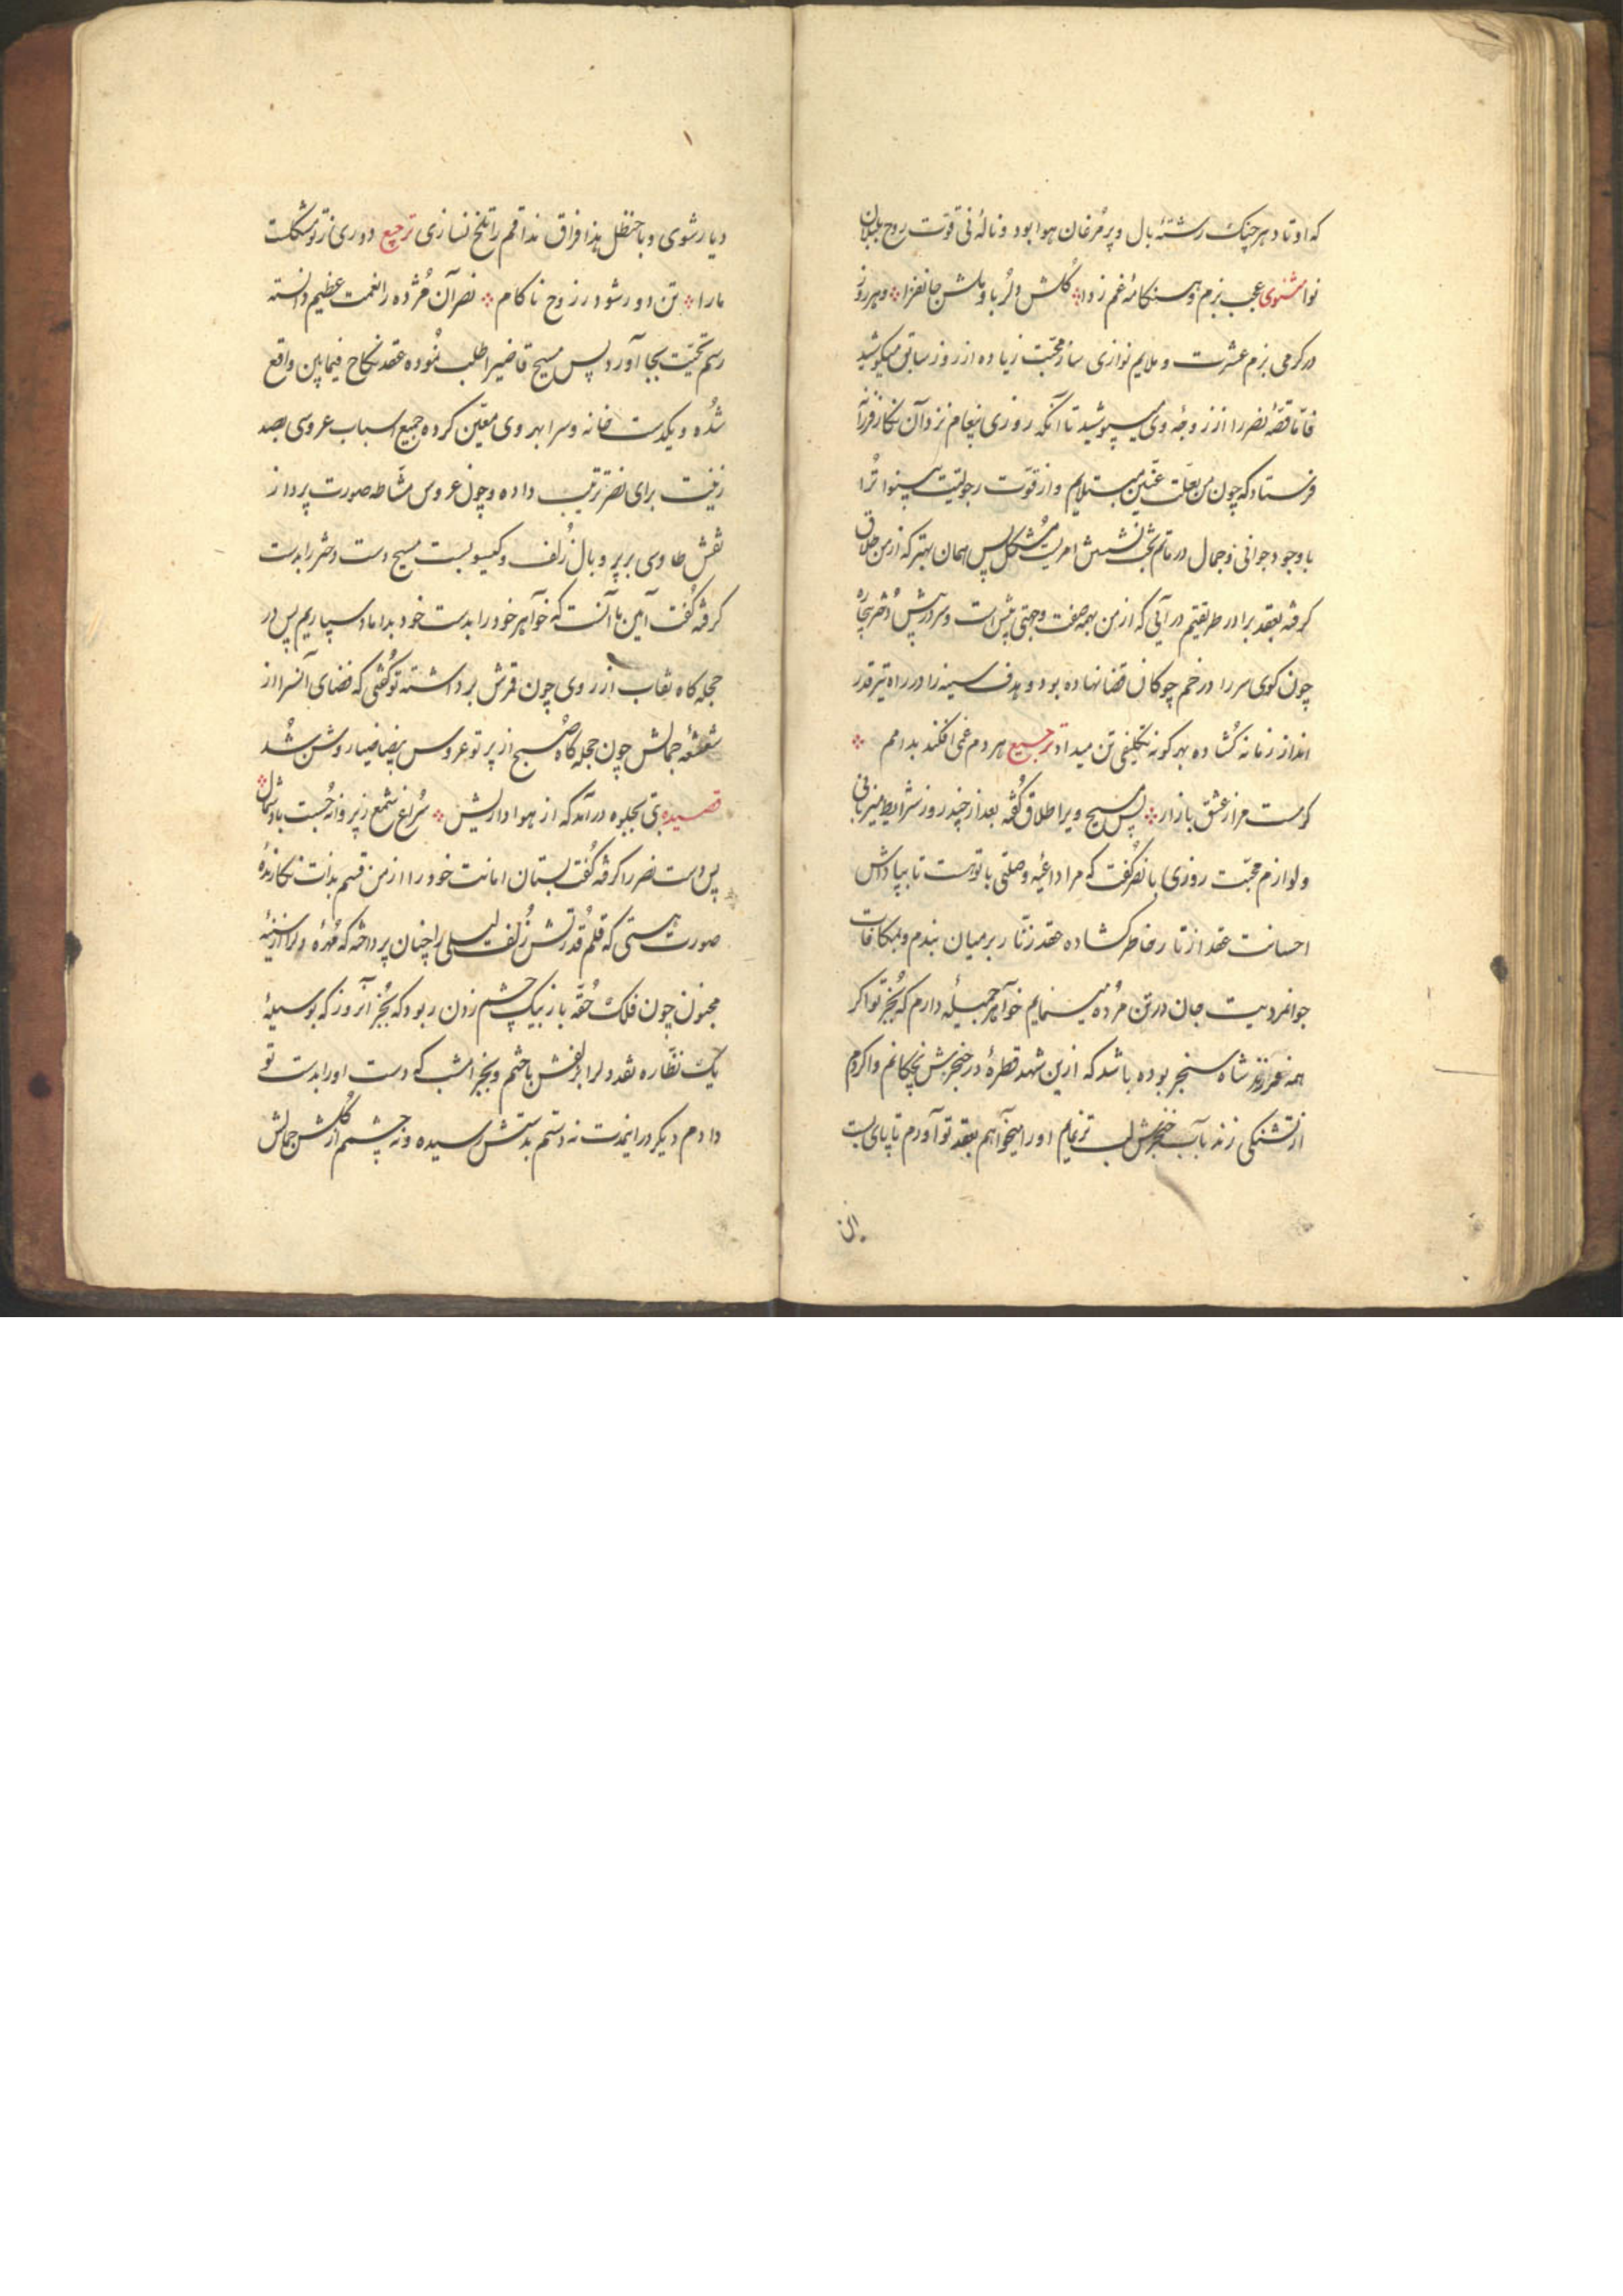 که اوتاد هر چنگ رشتهٔ بال و پر مرغان هوا بود و نالهٔ نی قوّت روح بلبلان
نوا مثنوی عجب بزم و هنگامهٔ غم زدا گلش دلربا و ملش جانفزا و هر روز
در گرمی بزم عشرت و ملایم نوازی ساز محبّت زیاده از روز سابق میکوشید
فامّا قصّهٔ نصر را از زوجهٔ وی میپوشید تا آنکه روزی پیغام نزد آن نگار فرزانه
فرستاد که چون من بعلّت عنّین مبتلایم و از قوّت رجولیّت بینوا ترا
با وجود جوانی و جمال در ماتم نشستن امریست مشکل پس همان بهتر که از من طلاق
گرفته بعقد برادر طریقتم در آیی که از من بهمه صفت و جهتی بیش است و سر در پیش دختر بیچاره
چون گوی سر را در خم چوگان قضا نهاده بود و هدف سینه را در راه تیر قدر
انداز زمانه گشاده بهر گونه تکلیفی تن میداد ترجیع هر دم غمی افکند بدامم
گرمست مرا ز عشق بازار پس مسیح ویرا طلاق گفته بعد از چند روز شرایط میزبانی
و لوازم محبّت روزی با نصر گفت که مرا داعیهٔ وصلتی با تو هست تا بپاداش
احسانت عقد از تار خاطر گشاده عقد زنّار بر میان بندم و بمکافات
جوانمردیت جان در تن مرده مینمایم خواهر جمیله دارم که بجز تو اگر
همه فرزند شاه سنجر بوده باشد که ازین شهد قطرهٔ در حنجرش نچکانم و اگر دم
از تشنگی زند بآب خنجرش لب تر نمایم او را میخواهم بعقد تو آورم تا پای بست
این
دیار شوی و با حنظل هذا فراق مذاقم را تلخ نسازی ترجیع دوری ز تو مشکلست
ما را تن دور شود ز روح ناکام نصر آن مژده را نعمت عظیم دانسته
رسم تحیّت بجا آورد پس مسیح قاضیرا طلب نموده عقد نکاح فیمابین واقع
شده و یکدست خانه و سرا بهر وی معیّن کرده جمیع اسباب عروسی بصد
زینت برای نصر ترتیب داده و چون عروس مشّاطه صورت پرداز
نقش طاوی بر پر و بال زلف و گیسو بست مسیح دست دختر را بدست
گرفته گفت آیین ما آنست که خواهر خود را بدست خود بداماد سپاریم پس در
حجله گاه نقاب از روی چون قمرش برداشته تو گفتی که فضای آنسرا از
شعشعهٔ جمالش چون حجله گاه صبح از پرتو عروس بیضا ضیا روشن شد
قصیده بتی بجلوه در آمد که از هوا داریش سراغ شمع ز پروانه جست باد شمال
پس دست نصر را گرفته گفت بستان امانت خود را از من قسم بذات نگارندهٔ
صورت هستی که قلم قدرتش زلف لیلی را چنان پرداخته که مهرهٔ دل را از سینهٔ
مجنون چون فلک حقّه باز بیک چشم زدن ربود که بجز آنروز که بوسیلهٔ
یک نظّاره نقد دل را بزلفش باختم و بجز امشب که دست او را بدست تو
دادم دیگر در اینمدت نه دستم بدستش رسیده و نه چشمم از گلشن جمالش